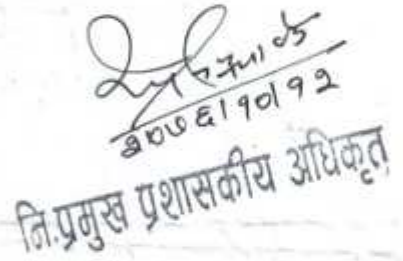 २०७६।१०।१२
नि.प्रमुख प्रशासकीय अधिकृत